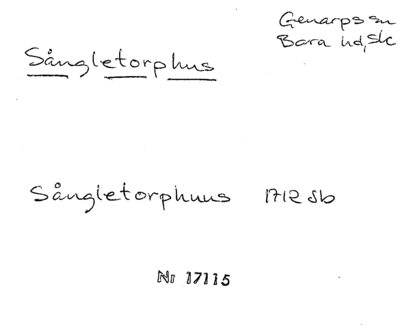 Genarps sn
Bara hd, Sk
Sångletorphus
Sångletorphuus 1712 Jb
Nr 17115